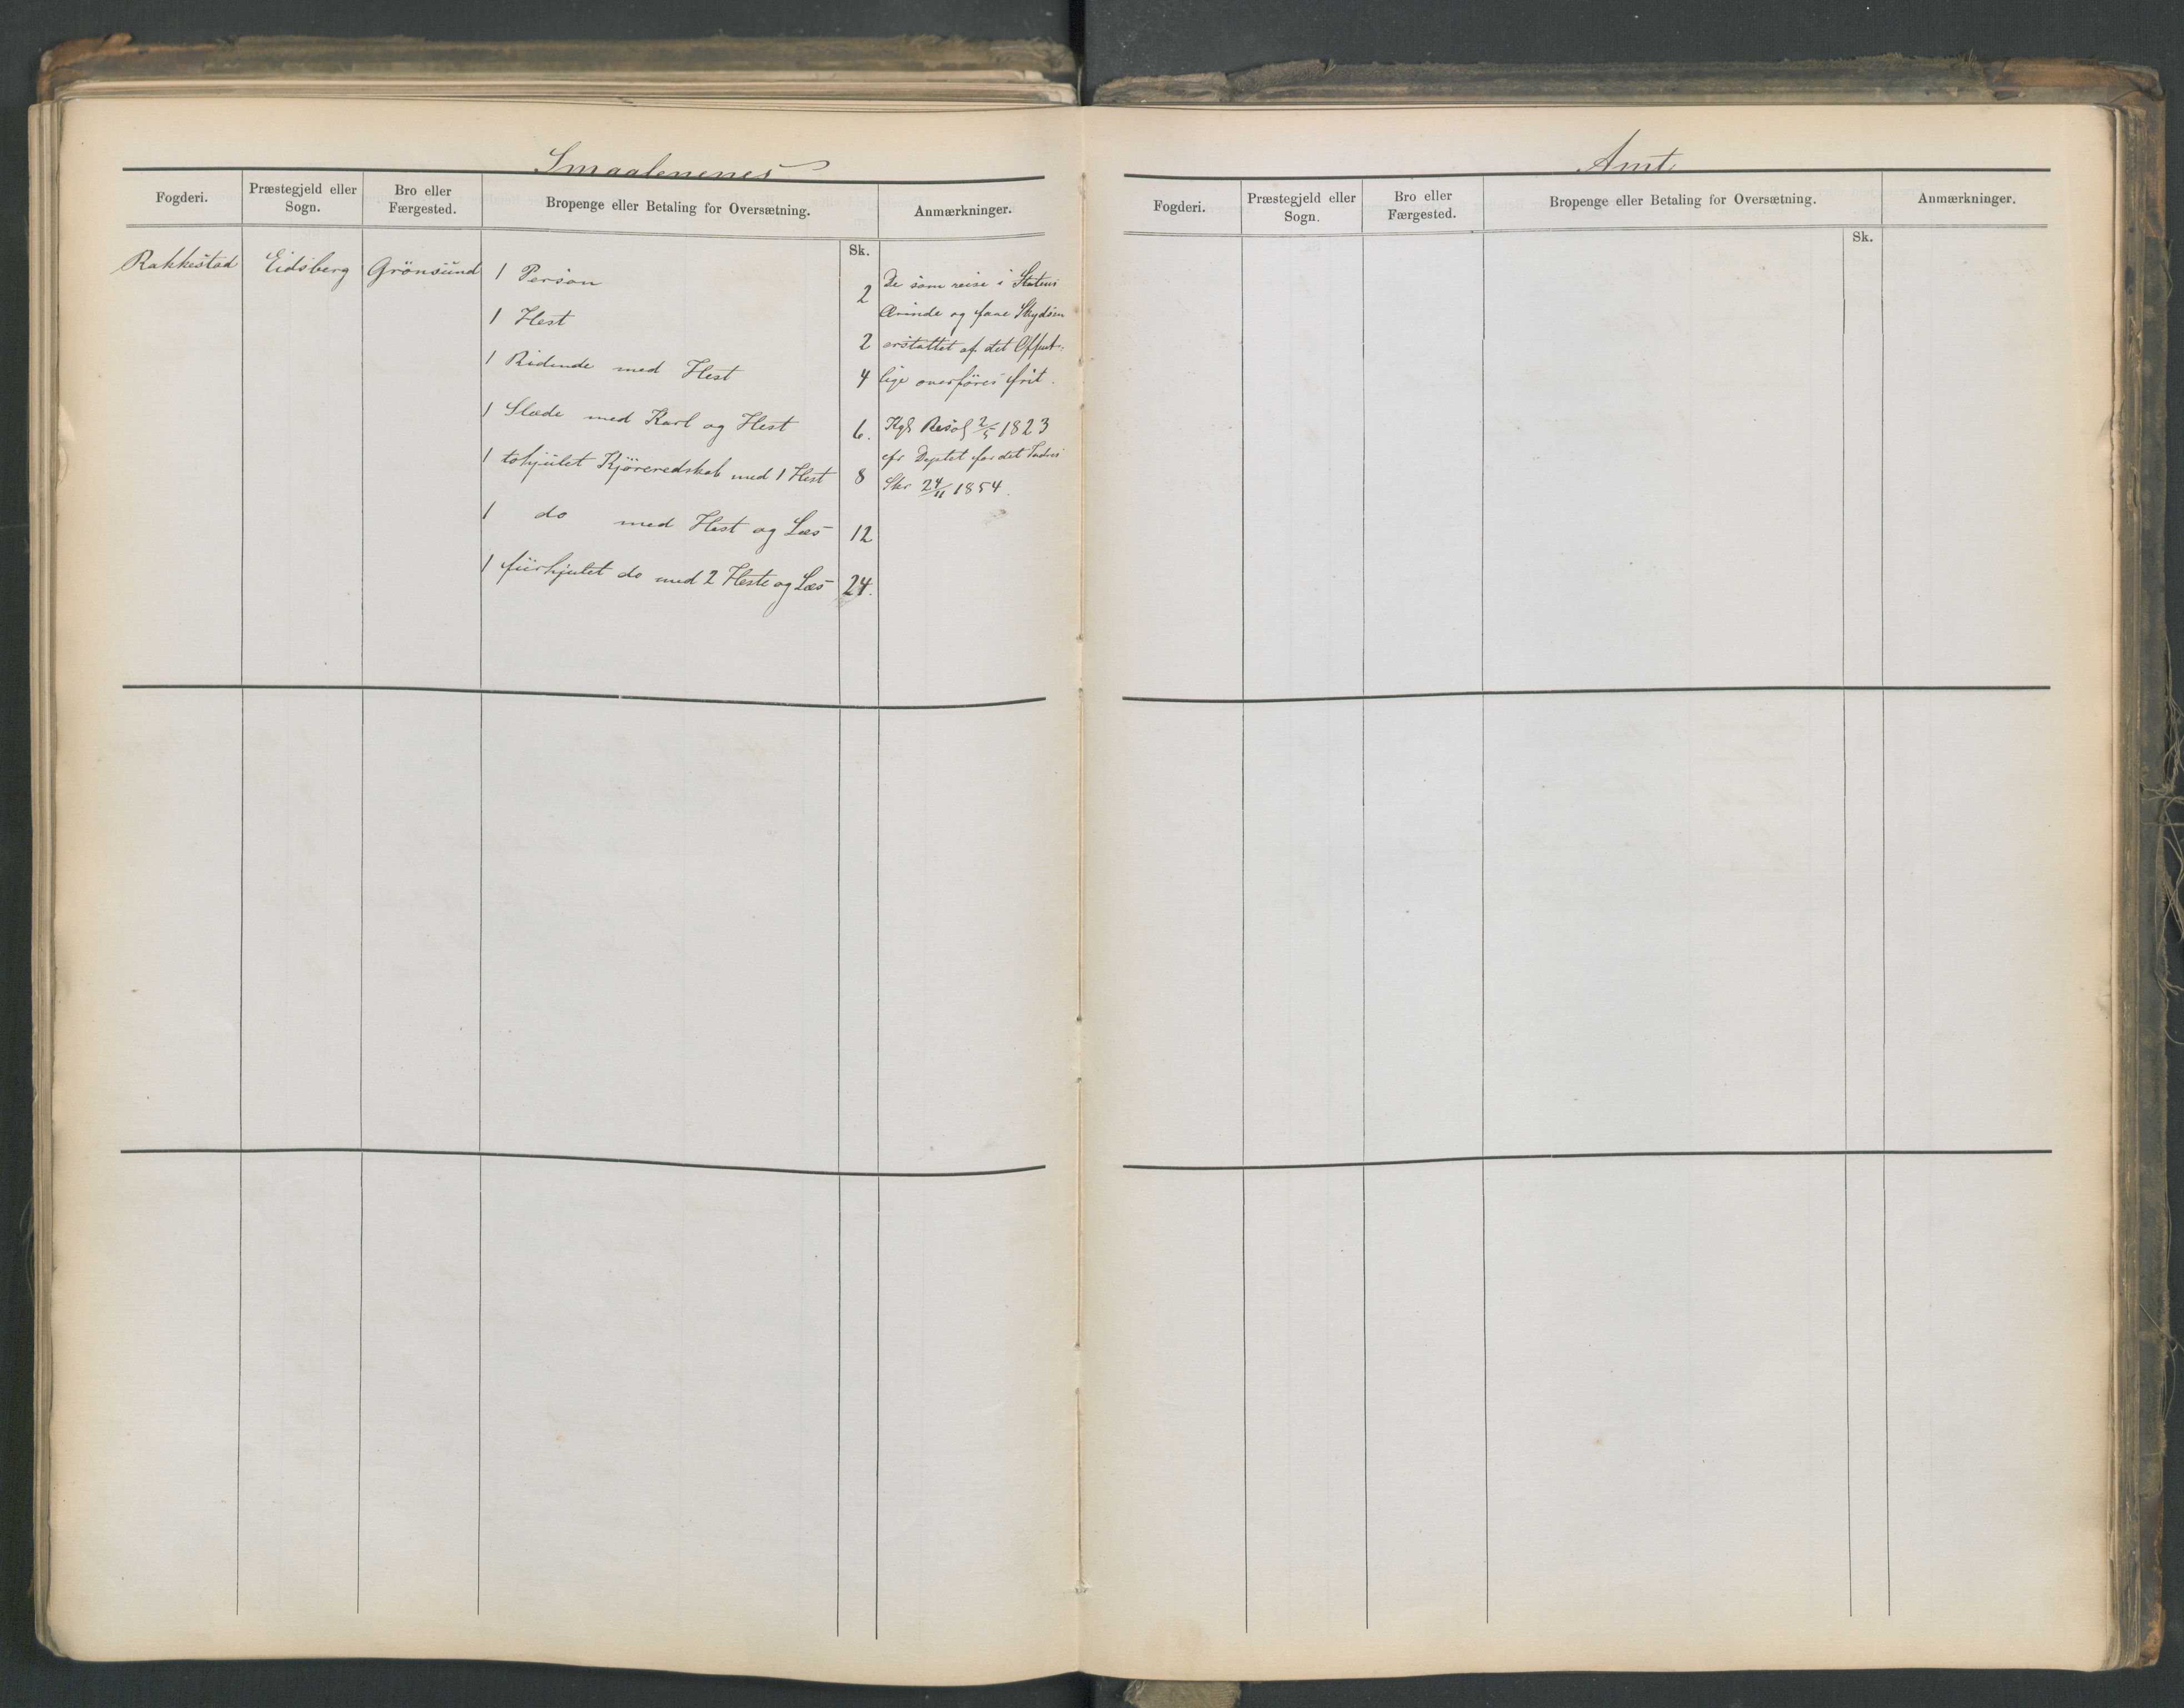 Smaalenenes
Fogderi.
Præstegjeld eller
Sogn.
Bro eller
Færgested.
Bropenge eller Betaling for Oversætning.
Anmærkninger.
Sk.
Rakkestad Eidsberg Grönsund 1 Person 2
1 Hest 2
1 Ridende med Hest 4
1 Slæde med Karl og Hest 6.
1 tohjulet Kjöreredskab med 1 Hest 8
1 do med Hest og Læs 12
1 fiirhjulet do med 2 Heste og Læs 24.
De som reise i Statens
Ærinde og faae Skydsen
erstattet af det Offent-
lige overföres frit.
Kgl Resol 2/5 1823
cfr Deptet for det Indres
Skr 24/11 1854.
Amt.
Fogderi.
Præstegjeld eller
Sogn.
Bro eller
Færgested.
Bropenge eller Betaling for Oversætning.
Anmærkninger.
Sk.